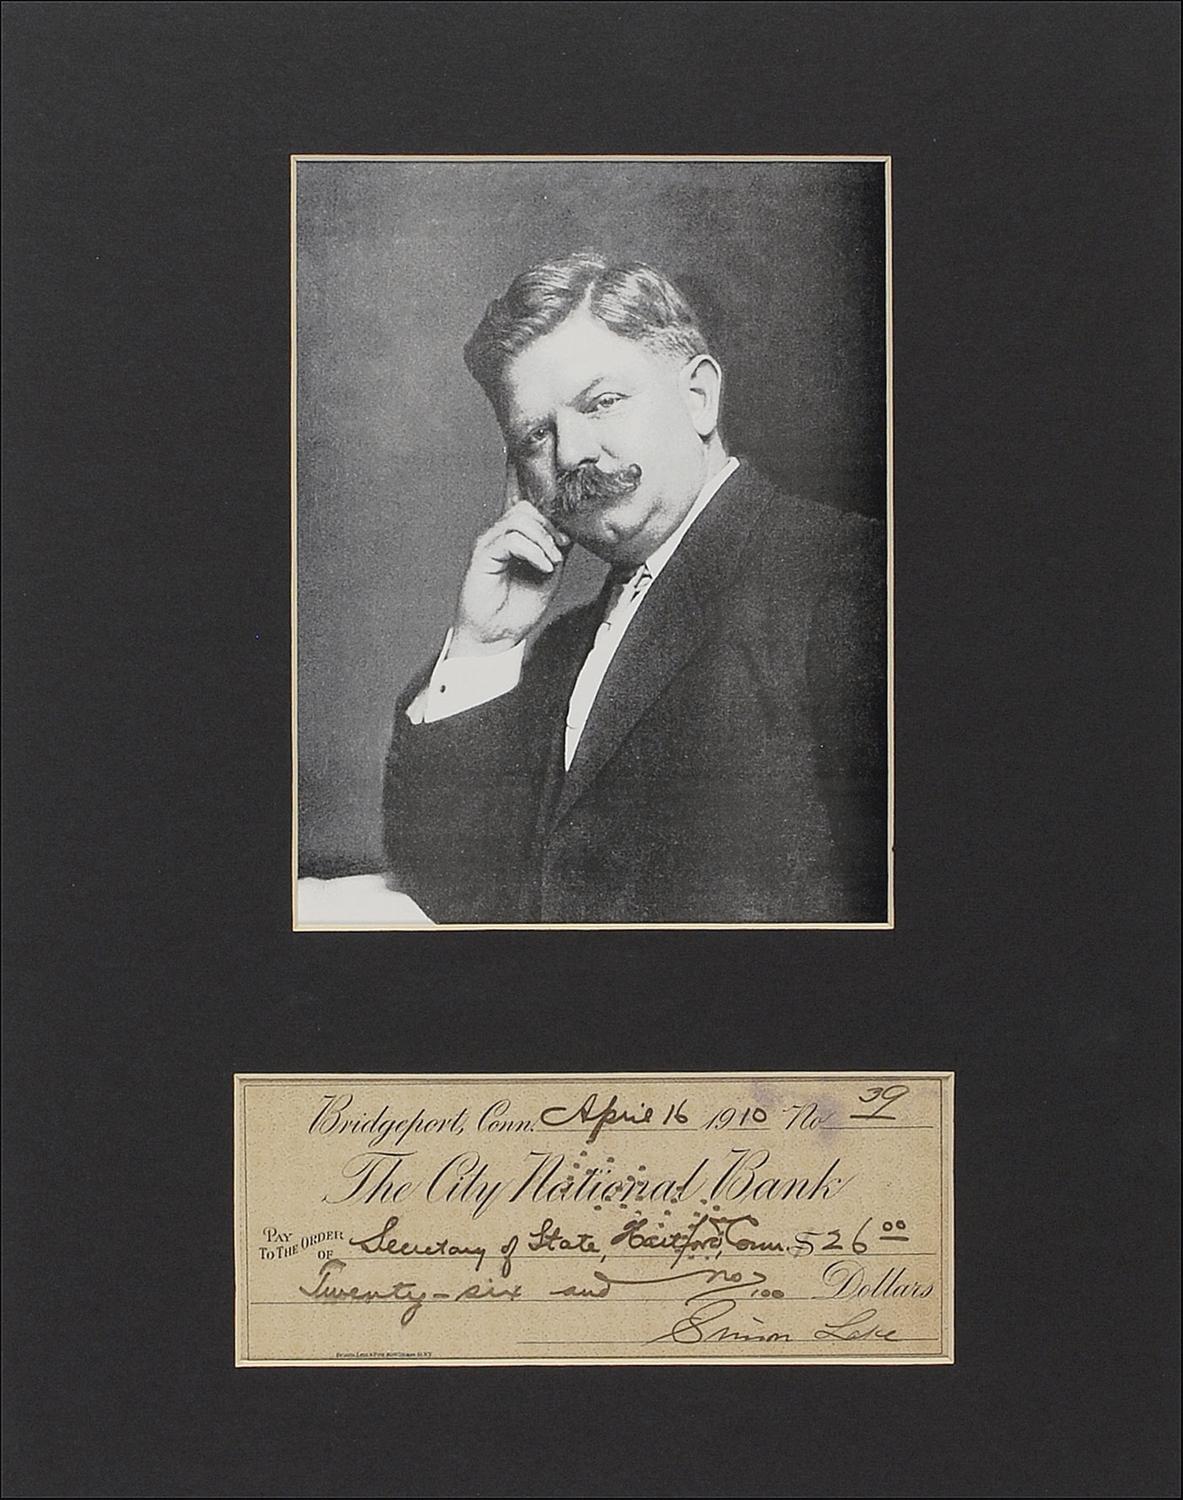 Bridgeport, Conn. April 16 1910 No 39
The City National Bank
PAY TO THE ORDER OF Secretary of State, Hartford, Conn. $ 26 00
Twenty-six and no/100 Dollars
Simon Lake